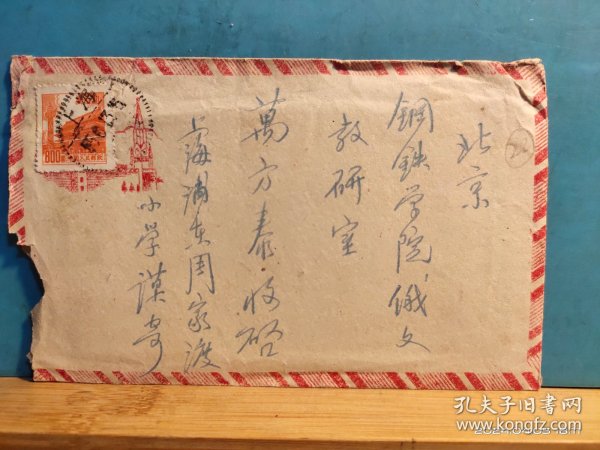 北京
鋼鉄学院俄文
教研室
萬方泰收啓
上海浦东周家渡
小学谨寄
800
上海
孔夫子旧书网
www.kongfz.com